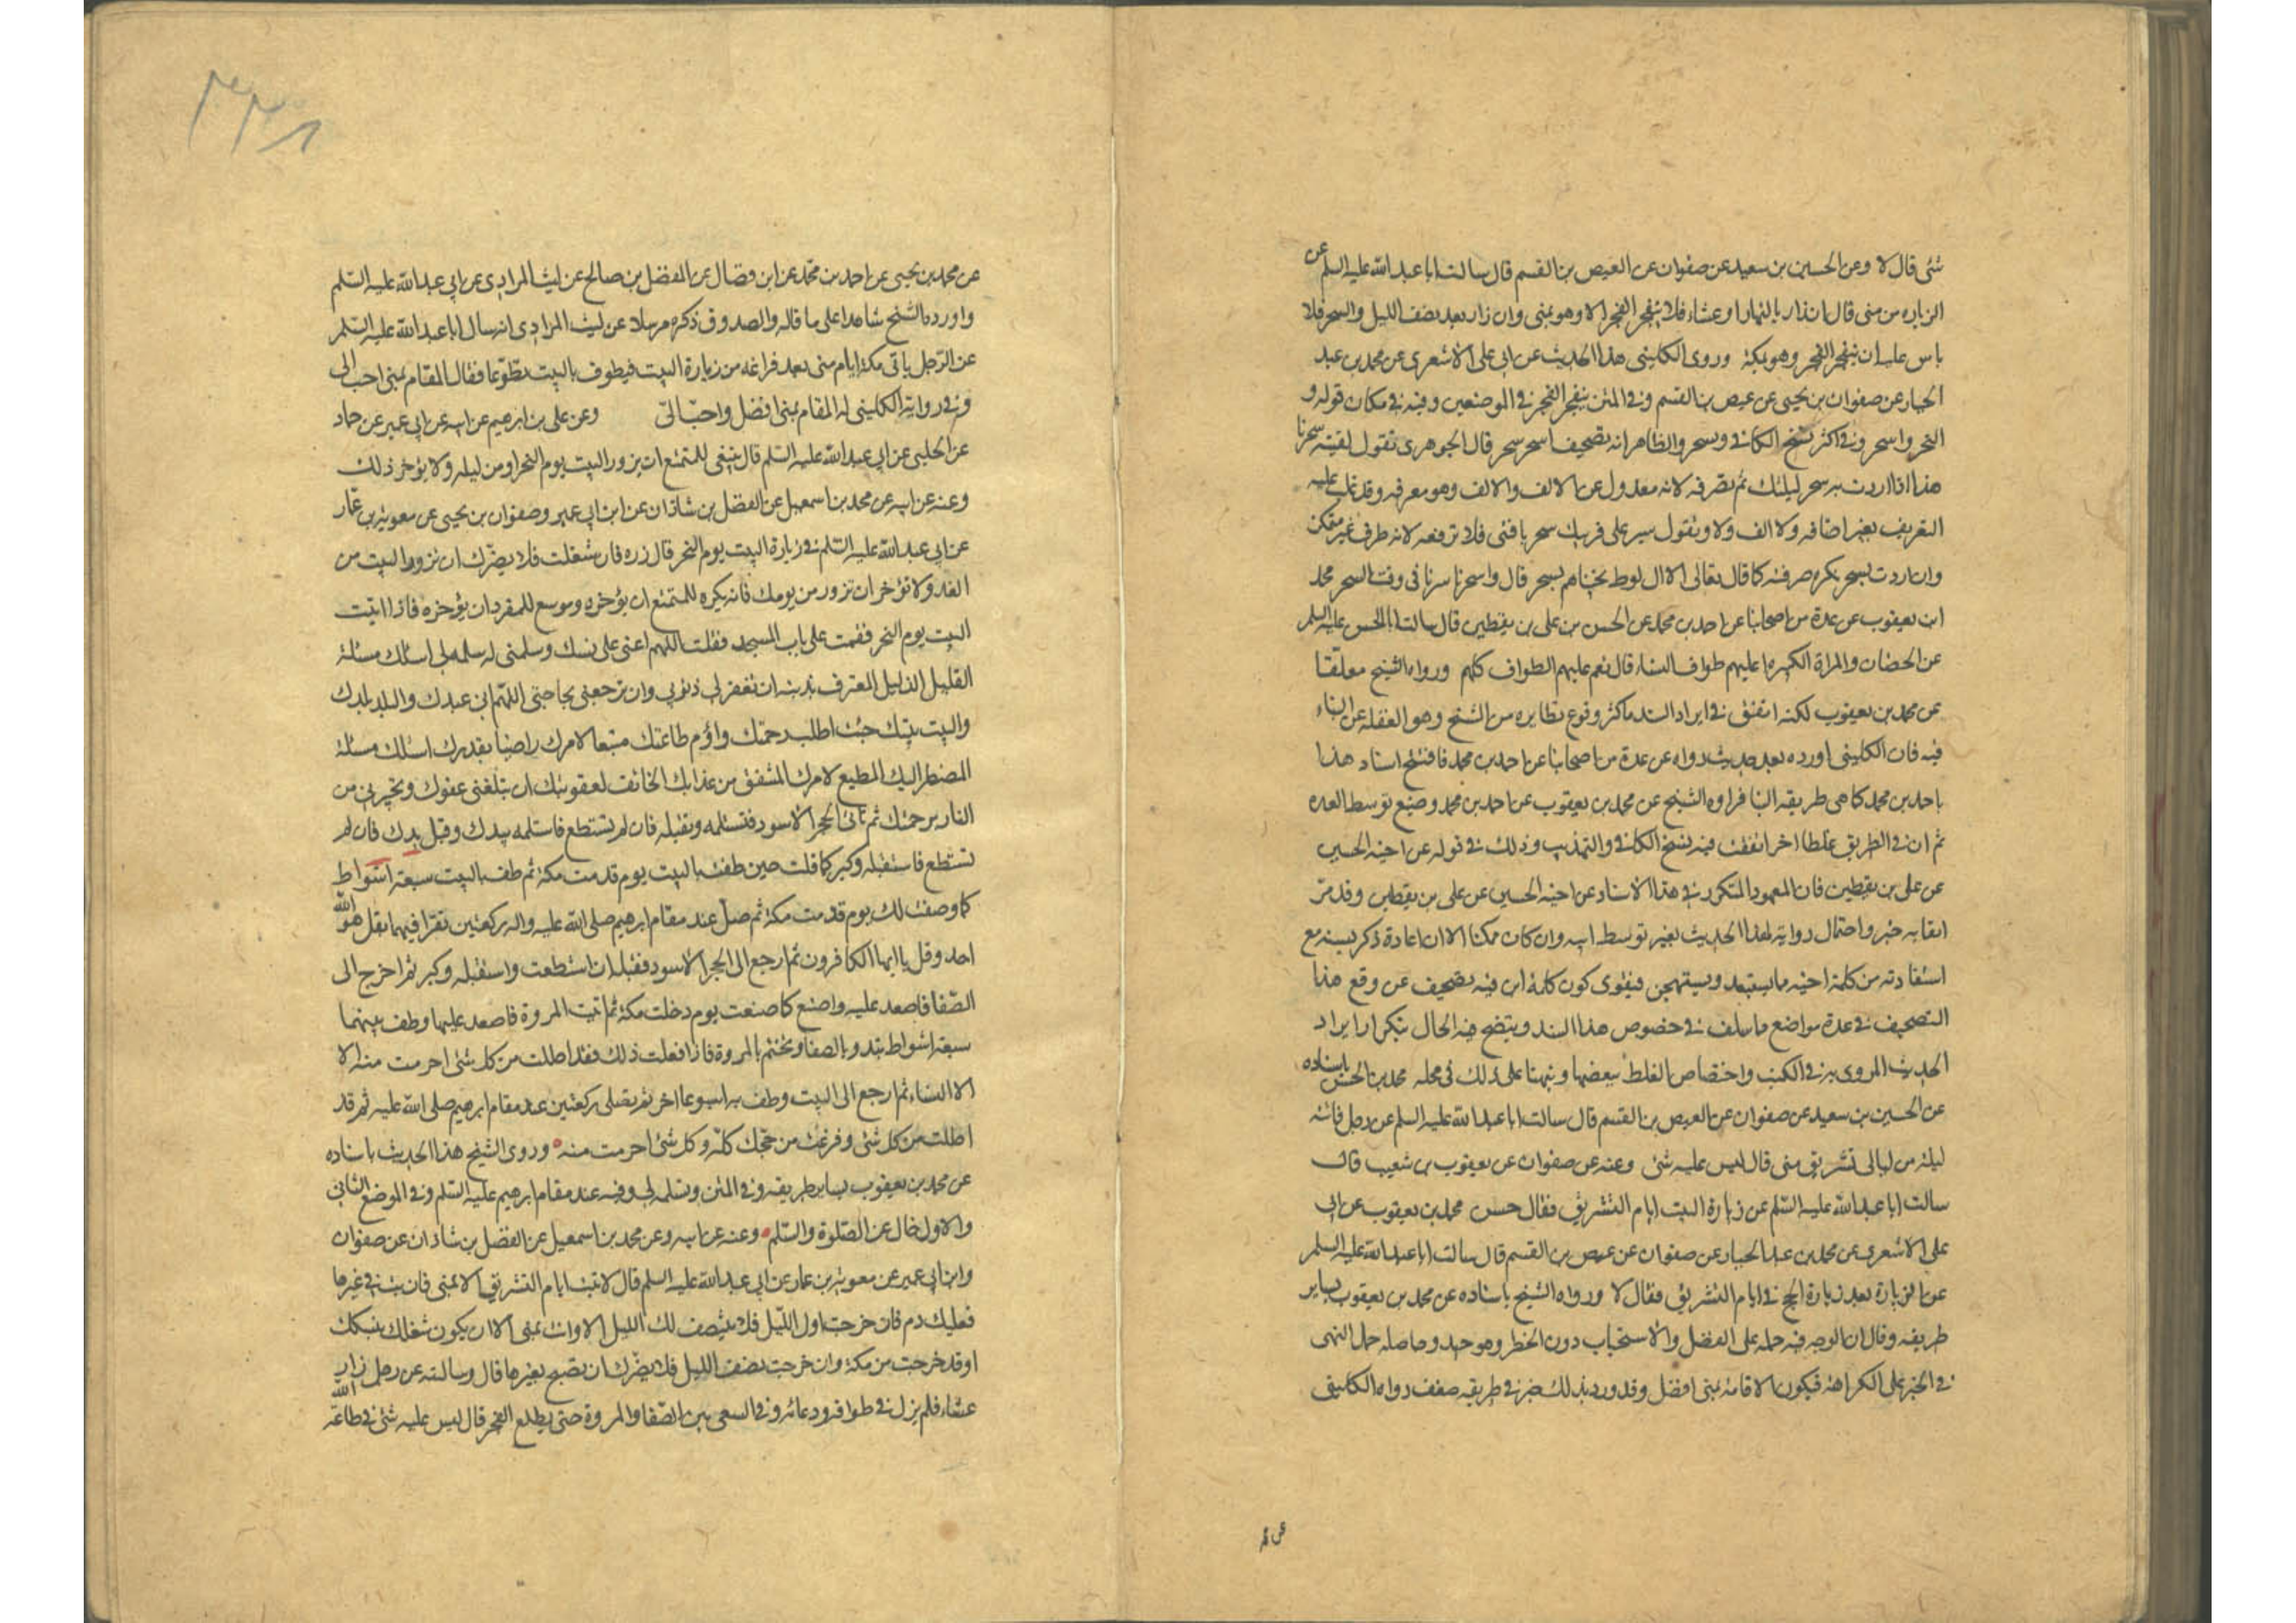 شئ قال لا وعن الحسين بن سعيد عن صفوان عن العيص بن القسم قال سالت ابا عبد الله عليه السلم عن
الزياره من منى قال ان زار بالنهار او عشاء فلا ينفجر الفجر الا وهو بمنى وان زار بعد نصف الليل والسحر فلا
باس عليه ان ينفجر الفجر وهو بمكة وروى الكليني هذا الحديث عن ابي على الاشعري عن محمد بن عبد
الجبار عن صفوان بن يحيى عن عيص بن القسم وفي المتن ينفجر الفجر في الموضعين وفيه في مكان قوله و
السحر واسحر وفي اكثر نسخ الكافي ويسحر والظاهر انه تصحيف اسحر سحر قال الجوهرى تقول لقيته سحرنا
هذا اذا اردت به سحر ليلتك لم تصرفه لانه معدول عن الالف والالف وهو معرفه وقد غلب عليه
التعريف بغير اضافه ولا الف ولا وتقول سير على فرسك سحر يا فتى فلا ترفعه لانه ظرف غير متمكن
وان اردت بسحر نكره صرفته كما قال تعالى الا ال لوط نجيناهم بسحر قال واسحرنا سرنا في وقت السحر محمد
ابن يعقوب عن عدة من اصحابنا عن احمد بن محمد عن الحسن بن على بن يقطين قال سالت ابا الحسن عليه السلم
عن الخصيان والمراة الكبيره اعليهم طواف النساء قال نعم عليهم الطواف كلهم ورواه الشيخ معلقا
عن محمد بن يعقوب لكنه اتفق في ايراد السند ما كثر وقوع نظايره من الشيخ وهو الغفلة عن البناء
فيه فان الكليني اورده بعد حديث رواه عن عدة من اصحابنا عن احمد بن محمد فافتتح اسناد هذا
باحمد بن محمد كما هى طريقه البنا فراوه الشيخ عن محمد بن يعقوب عن احمد بن محمد وضيع توسط العده
ثم ان في الطريق غلطا اخر اتفقت فيه نسخ الكافي والتهذيب وذلك في قوله عن اخيه الحسين
عن على بن يقطين فان المعهود المتكرر في هذا الاسناد عن اخيه الحسين عن على بن يقطين وقد مر
استفادته من كلمة اخيه ما يستبعد ويستهجن فيقوى كون كلمة ابن فيه تصحيف عن وقع هذا
التصحيف في عدة مواضع ما سلف في خصوص هذا السند ويتضح فيه الحال بتكرار ايراد
الحديث المروى به في الكتب واختصاص الغلط ببعضها ونبهنا على ذلك في محله محمد بن الحسن باسناده
عن الحسين بن سعيد عن صفوان عن العيص بن القسم قال سالت ابا عبد الله عليه السلم عن رجل فاتته
ليلة من ليالى تشريق منى قال ليس عليه شئ وعنه عن صفوان عن يعقوب بن شعيب قال
سالت ابا عبد الله عليه السلم عن زيارة البيت ايام التشريق فقال حسن محمد بن يعقوب عن ابي
على الاشعرى عن محمد بن عبد الجبار عن صفوان عن عيص بن القسم قال سالت ابا عبد الله عليه السلم
عن الزيارة بعد زيارة الحج في ايام التشريق فقال لا ورواه الشيخ باسناده عن محمد بن يعقوب بساير
طريقه وقال ان الوجه فيه حمله على الفضل والاستحباب دون الحظر وهو جيد وحاصله حمل النهى
في الخبر على الكراهة فيكون الاقامة بمنى افضل وقد ورد بذلك خبر في طريقه ضعف رواه الكليني
عن محمد بن يحيى عن احمد بن محمد عن ابن فضال عن المفضل بن صالح عن ليث المرادى عن ابي عبد الله عليه السلم
واورده الشيخ شاهدا على ما قاله والصدوق ذكره مرسلا عن ليث المرادى انه سال ابا عبد الله عليه السلم
عن الرجل ياتى مكة ايام منى بعد فراغه من زيارة البيت فيطوف بالبيت تطوعا فقال المقام بمنى احب الى
وفي رواية الكليني له المقام بمنى افضل واحب الى وعن على بن ابرهيم عن ابيه عن ابي عمير عن حماد
عن الحلبي عن ابي عبد الله عليه السلم قال ينبغى للمتمتع ان يزور البيت يوم النحر او من ليله ولا يؤخر ذلك
وعنه عن ابيه عن محمد بن اسمعيل عن الفضل بن شاذان عن ابن ابي عمير وصفوان بن يحيى عن معوية بن عمار
عن ابي عبد الله عليه السلم في زيارة البيت يوم النحر قال زره فان شغلت فلا يضرك ان تزور البيت من
الغد ولا تؤخر ان تزور من يومك فانه يكره للمتمتع ان يؤخره وموسع للمفرد ان يؤخره فاذا اتيت
البيت يوم النحر فقمت على باب المسجد فقلت اللهم اعنى على نسك وسلمنى له سلمه لى اسئلك مسئلة
القليل الذليل المعترف بذنبه ان تغفر لى ذنوبي وان ترجعنى بحاجتى اللهم انى عبدك والبلد بلدك
والبيت بيتك جئت اطلب رحمتك واؤم طاعتك متبعا لامرك راضيا بقدرك اسئلك مسئلة
المضطر اليك المطيع لامرك المشفق من عذابك الخائف لعقوبتك ان تبلغنى عفوك وتجيرني من
النار برحمتك ثم تاتى الحجر الاسود فتستلمه وتقبله فان لم تستطع فاستلمه بيدك وقبل يدك فان لم
تستطع فاستقبله وكبر كما قلت حين طفت بالبيت يوم قدمت مكة ثم طف بالبيت سبعة اشواط
كما وصفت لك يوم قدمت مكة ثم صل عند مقام ابرهيم صلى الله عليه واله ركعتين تقرا فيهما بقل هو الله
احد وقل يا ايها الكافرون ثم ارجع الى الحجر الاسود فقبله ان استطعت واستقبله وكبر ثم اخرج الى
الصفا فاصعد عليه واصنع كما صنعت يوم دخلت مكة ثم ائت المروة فاصعد عليها وطف بينهما
سبعة اشواط تبدو بالصفا وتختم بالمروة فاذا فعلت ذلك فقد احللت من كل شئ احرمت منه الا
الا النساء ثم ارجع الى البيت وطف به اسبوعا اخر ثم تصلى ركعتين عند مقام ابرهيم صلى الله عليه ثم قد
احللت من كل شئ وفرغت من حجك كله وكل شئ احرمت منه وروى الشيخ هذا الحديث باسناده
عن محمد بن يعقوب بساير طريقه وفي المتن وتسلمه لى وفيه عند مقام ابرهيم عليه السلم وفي الموضع الثاني
والاول خال عن الصلوة والسلم وعنه عن ابيه وعن محمد بن اسمعيل عن الفضل بن شاذان عن صفوان
وابن ابي عمير عن معوية بن عمار عن ابي عبد الله عليه السلم قال لا تبت ايام التشريق الا بمنى فان بت في غيرها
فعليك دم فان خرجت اول الليل فلا ينتصف لك الليل الا وانت بمنى الا ان يكون شغلك بنسكك
او قد خرجت من مكة وان خرجت نصف الليل فلا يضرك ان تصبح بغيرها قال وسالته عن رجل زار
عشاء فلم يزل في طوافه ودعائه وفي السعى بين الصفا والمروة حتى يطلع الفجر قال ليس عليه شئ في طاعة الله